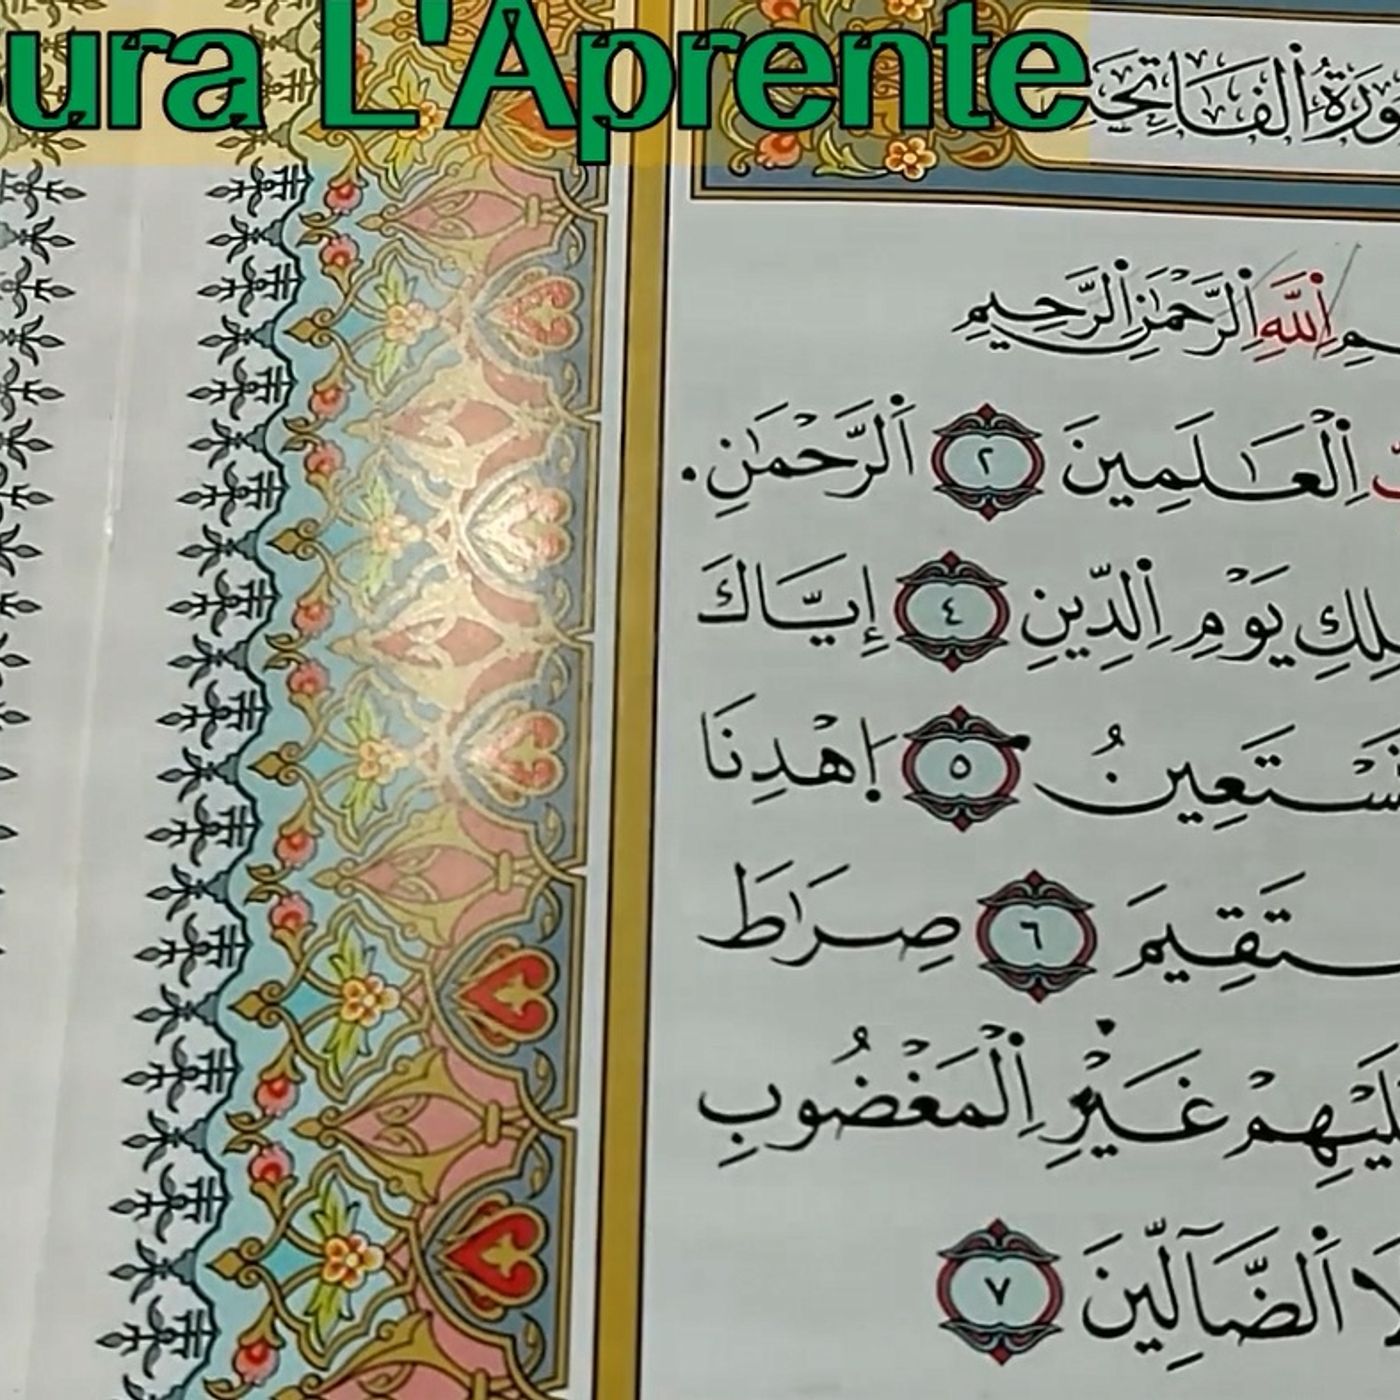 ura L'Aprente
ورَةُ اُلْفَاتِحَةِ
مِ اِللَّهِ اِلرَّحْمَٰنِ اِلرَّحِيمِ
اِلْعَٰلَمِينَ ٢ اَلرَّحْمَٰنِ
لِكِ يَوْمِ اِلدِّينِ ٤ إِيَّاكَ
سْتَعِينُ ٥ اِهْدِنَا
سْتَقِيمَ ٦ صِرَٰطَ
لَيْهِمْ غَيْرِ اِلْمَغْضُوبِ
لَا اَلضَّآلِّينَ ٧